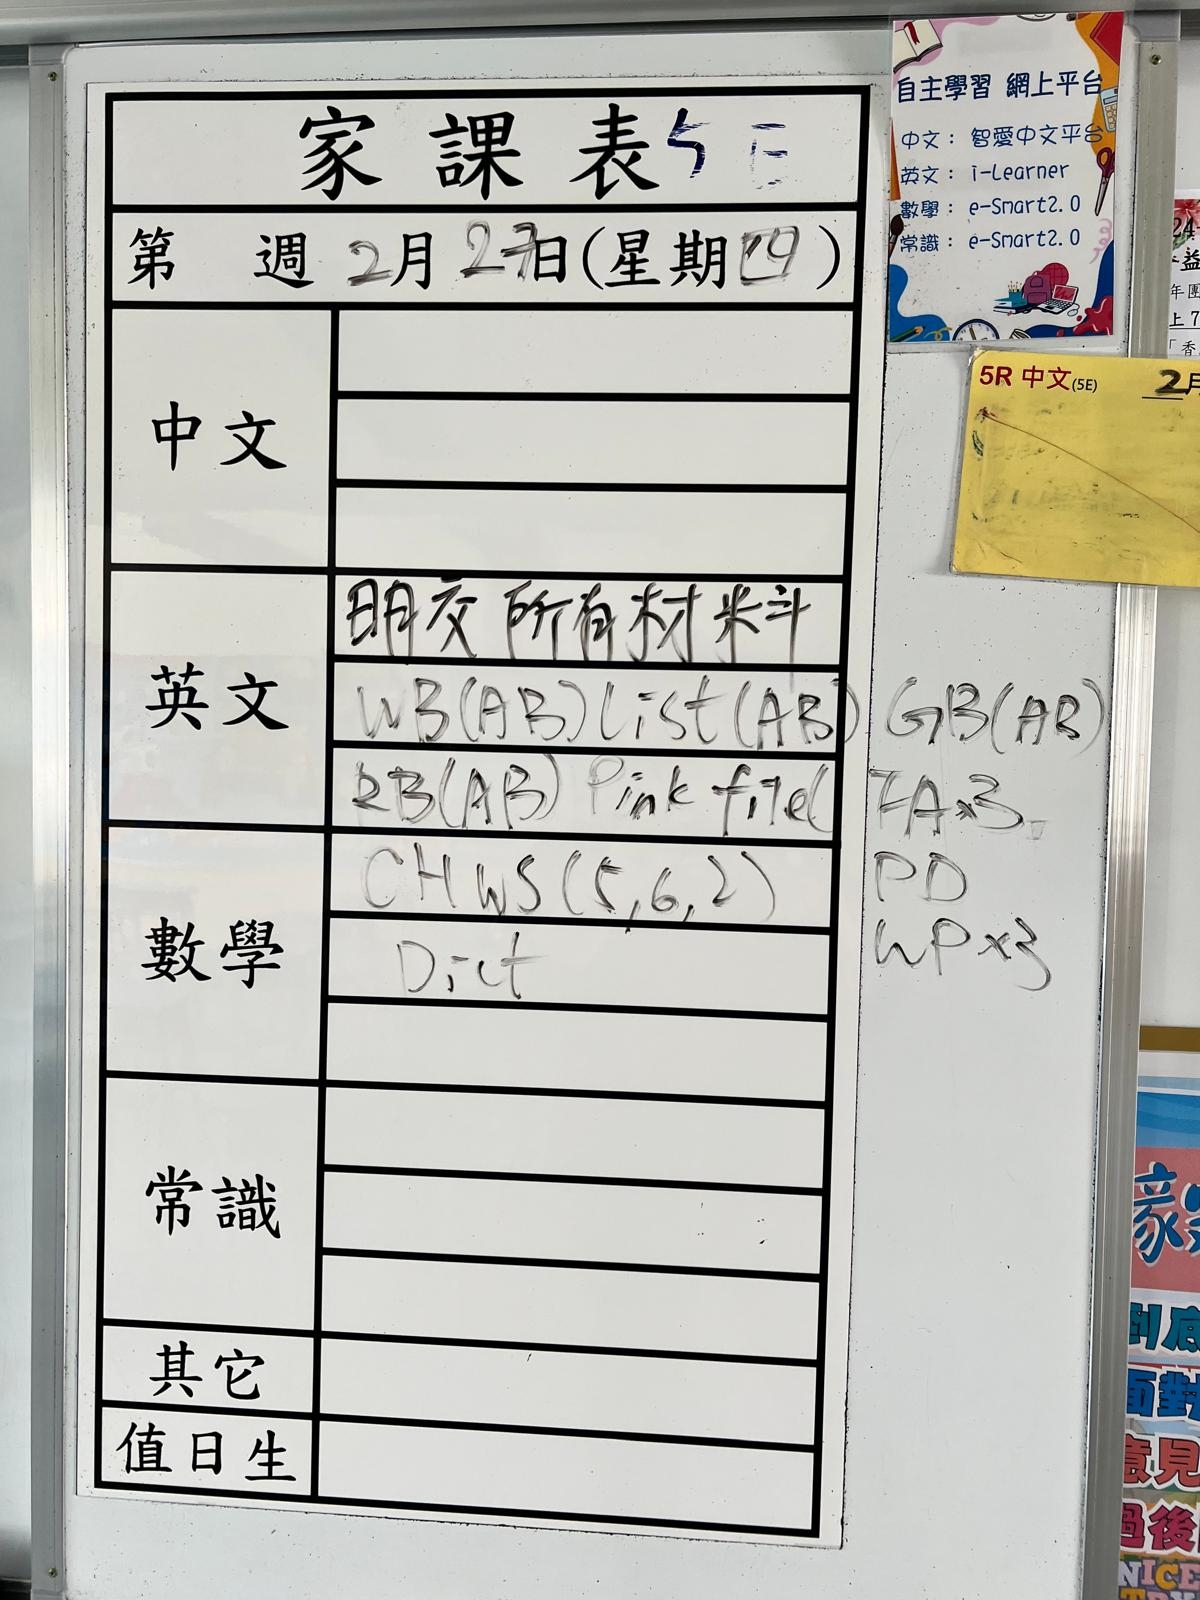 家課表 5E
第 週 2月27日(星期四)
中文
英文
明交所有材料
WB(AB) List(AB) GB(AB)
RB(AB) Pink file( FA x3
數學
CHWS(5,6,2) PD
Dict WP x3
常識
其它
值日生
自主學習 網上平台
中文: 智愛中文平台
英文: i-Learner
數學: e-Smart2.0
常識: e-Smart2.0
5R 中文(5E) 2月
年團
上7
「香
到底
面對
意見
過後
NICE